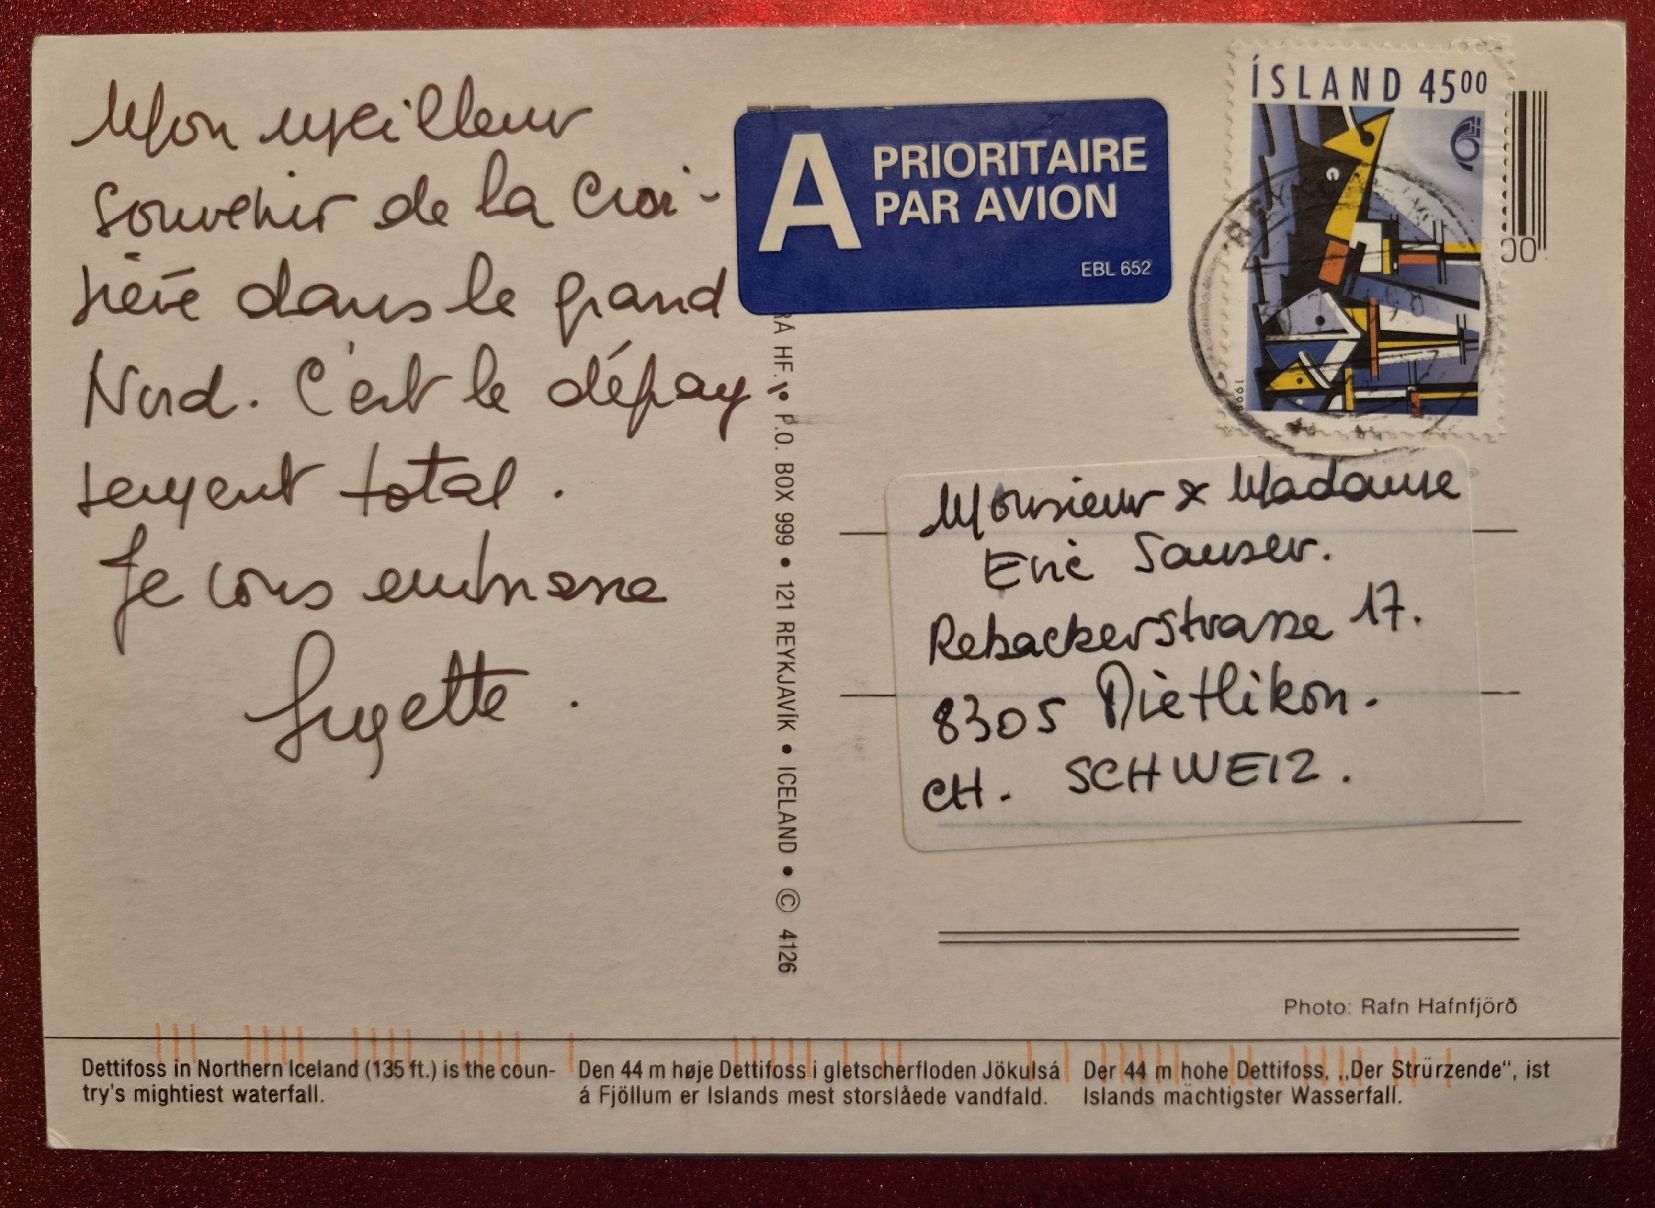 Mon meilleur
souvenir de la croi-
sière dans le grand
Nord. C'est le dépay
sement total.
Je vous embrasse
Sugette.
A PRIORITAIRE
PAR AVION
EBL 652
ÍSLAND 4500
1998
RÁ HF. • P.O. BOX 999 • 121 REYKJAVÍK • ICELAND • © 4126
Monsieur & Madame
Eric Sauser.
Rebackerstrasse 17.
8305 Dietlikon.
CH. SCHWEIZ.
Photo: Rafn Hafnfjörð
Dettifoss in Northern Iceland (135 ft.) is the coun-
try's mightiest waterfall.
Den 44 m høje Dettifoss i gletscherfloden Jökulsá
á Fjöllum er Islands mest storslåede vandfald.
Der 44 m hohe Dettifoss, „Der Strürzende“, ist
Islands mächtigster Wasserfall.